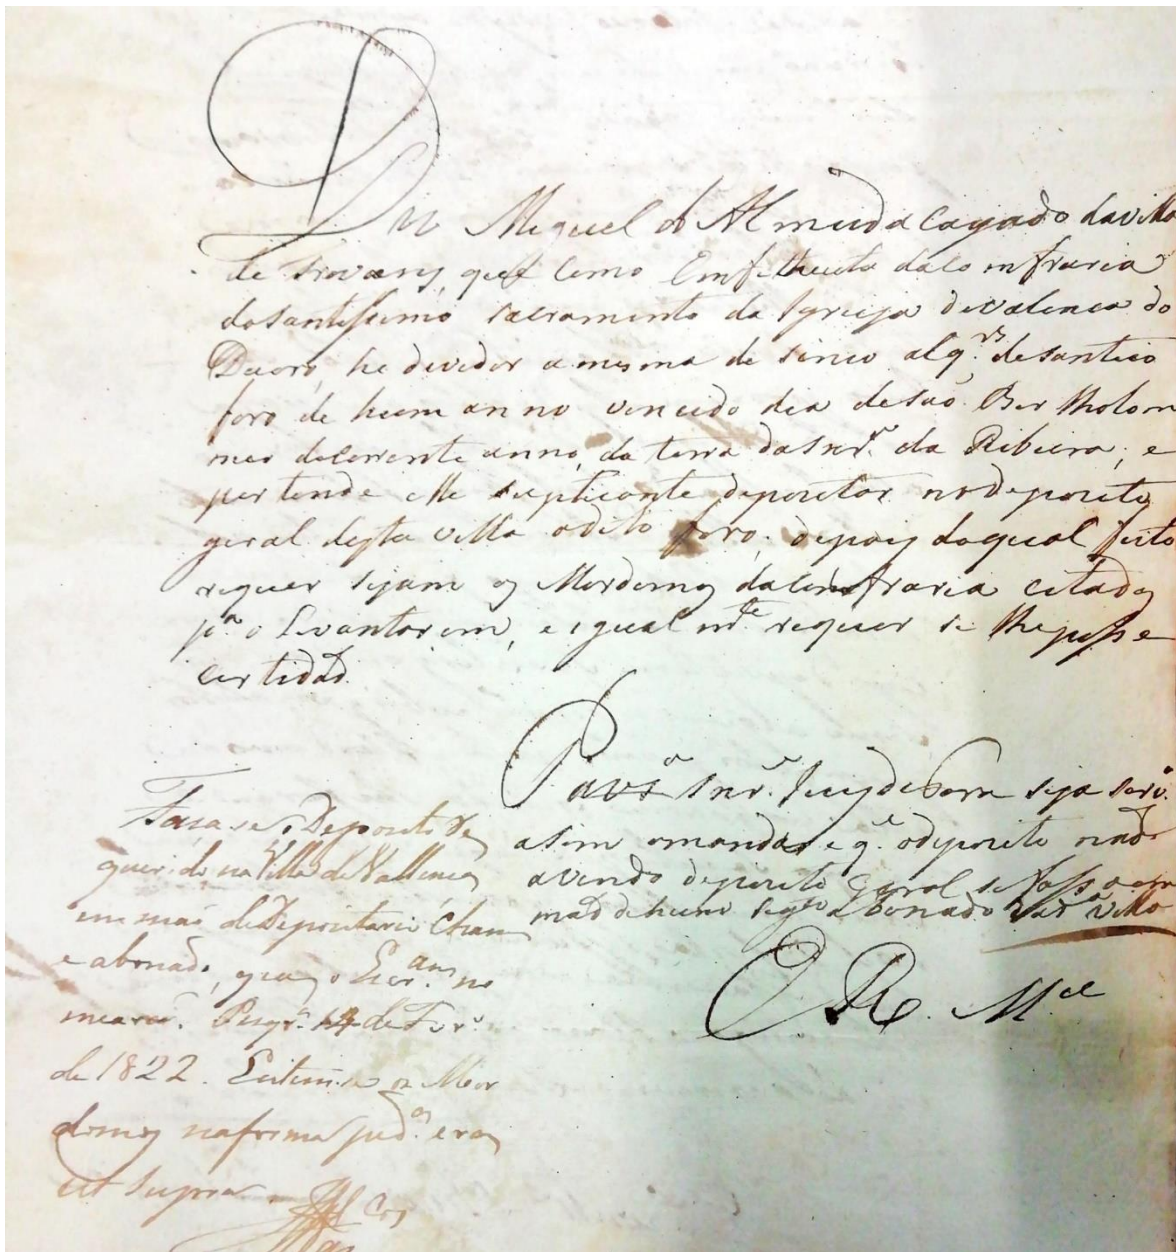 Diz Miguel de Almeida Cayado da villa
de Trovoens, que como Emfiteuta da comfraria
do santissimo sacramento da Igreija de valenca do
Douro, he devedor a mesma de sinco alq.res de santeio
foro de hum anno vencido dia de são Bertholom
meo do corrente anno, da terra da Snr.ª da Ribeira, e
pertende elle suplicante depozitar no depozito
geral desta villa o dito foro, depois do qual feito
requer sejam os Mordomos da comfraria citados
p.ª o Levantarem, e igual m.te requer se lhe passe
certidaõ.
P a vs.ª Snr. Juiz de Fora seja serv.º
asim o mandar e q.e o depozito naõ
avendo depozito geral se fassa em
maõ de hum seg.ro e abonado da d.ª villa
E R M.ce
Faça-se o Deposito re
querido na Villa de Vallença,
em maõ de Depositario Cham
e abonado, que o Escr.am no
meará. Pesqr.ª 14 de Fevr.º
de 1822. Citem-se os Mor
domos na forma ped.ª era
ut supra